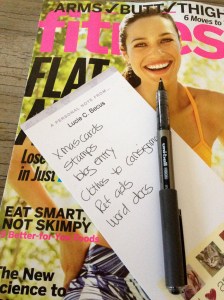 ARMS✓BUTT✓THIGH
6 Moves to
fitness
FLAT
A PERSONAL NOTE FROM
Lucie C. Becus
Xmas cards
Stamps
blog entry
Clothes to consignment
Ref ads
Word docs
Lose
in Just
EAT SMART,
NOT SKIMPY
Better-for-You Foods
The New
science to